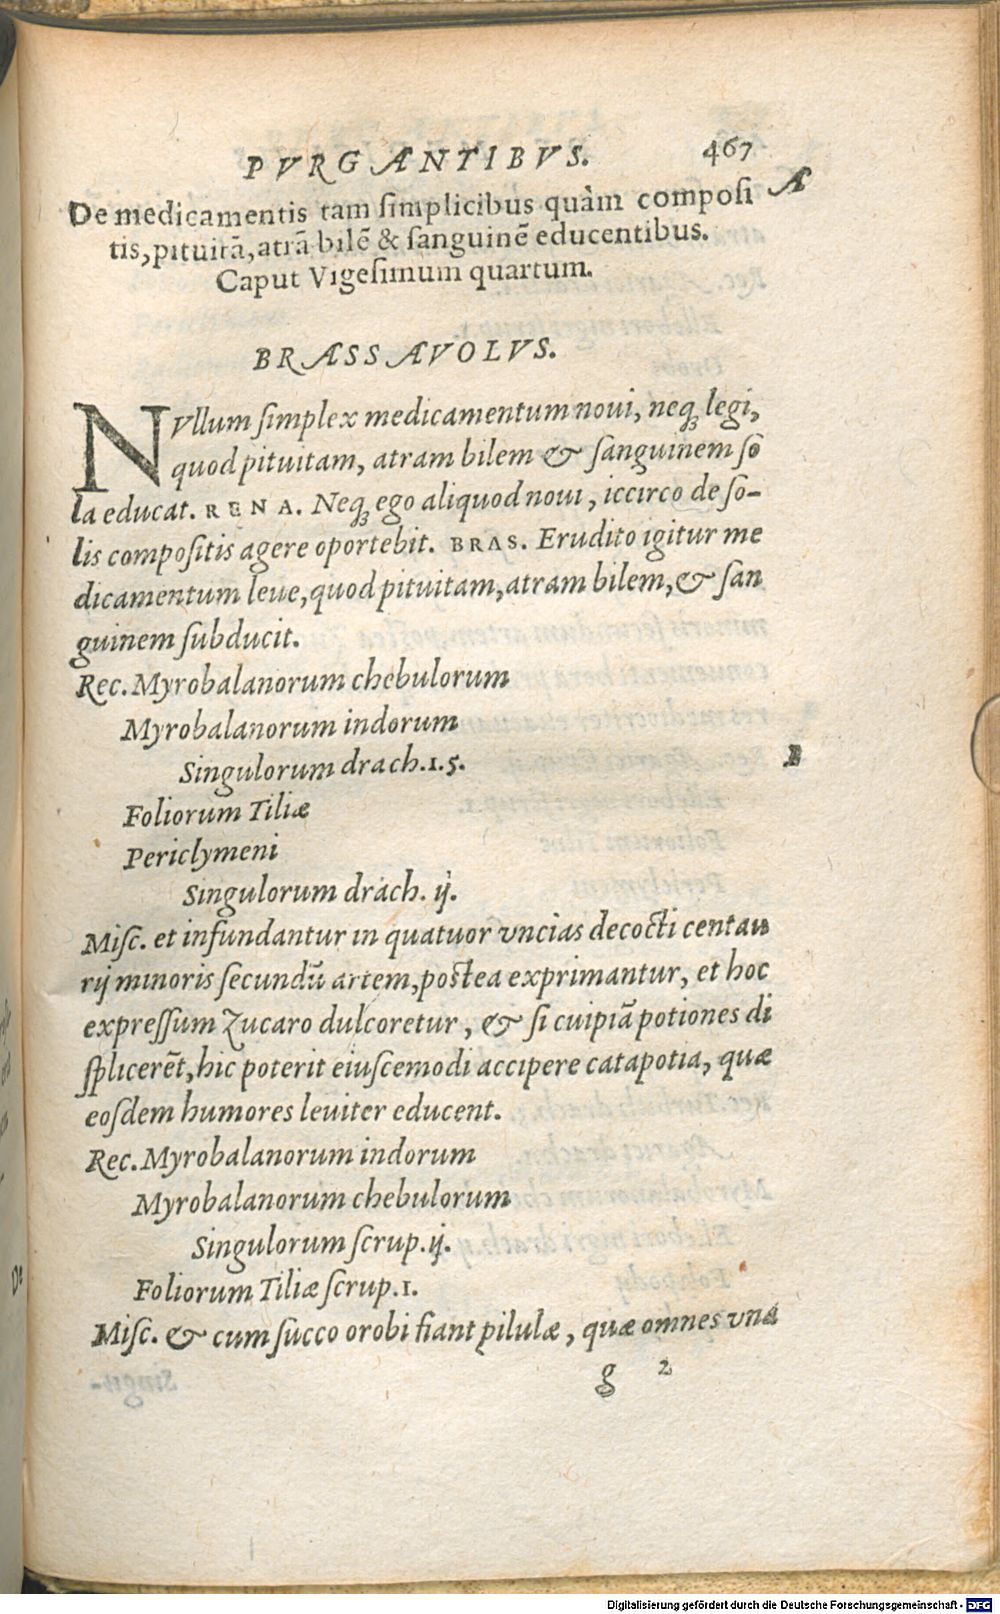 PVRGANTIBVS. 467
De medicamentis tam simplicibus quàm composi A
tis, pituitā, atrā bilē & sanguinē educentibus.
Caput Vigesimum quartum.
BRASSAVOLVS.
NVllum simplex medicamentum noui, neq; legi,
quod pituitam, atram bilem & sanguinem so
la educat. RENA. Neq; ego aliquod noui, iccirco de so-
lis compositis agere oportebit. BRAS. Erudito igitur me
dicamentum leue, quod pituitam, atram bilem, & san
guinem subducit.
Rec. Myrobalanorum chebulorum
Myrobalanorum indorum
Singulorum drach.1.5. B
Foliorum Tiliæ
Periclymeni
Singulorum drach. ij.
Misc. et infundantur in quatuor vncias decocti centau
rij minoris secundū artem, postea exprimantur, et hoc
expressum Zucaro dulcoretur, & si cuipiā potiones di
splicerēt, hic poterit eiuscemodi accipere catapotia, quæ
eosdem humores leuiter educent.
Rec. Myrobalanorum indorum
Myrobalanorum chebulorum
Singulorum scrup.ij.
Foliorum Tiliæ scrup.1.
Misc. & cum succo orobi fiant pilulæ, quæ omnes vna
g 2
Digitalisierung gefördert durch die Deutsche Forschungsgemeinschaft - DFG